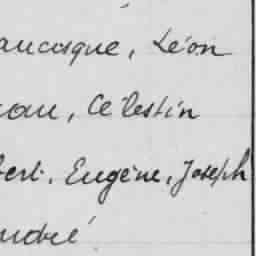 aucasque, Léon
eau, Célestin
bert, Eugène, Joseph
André